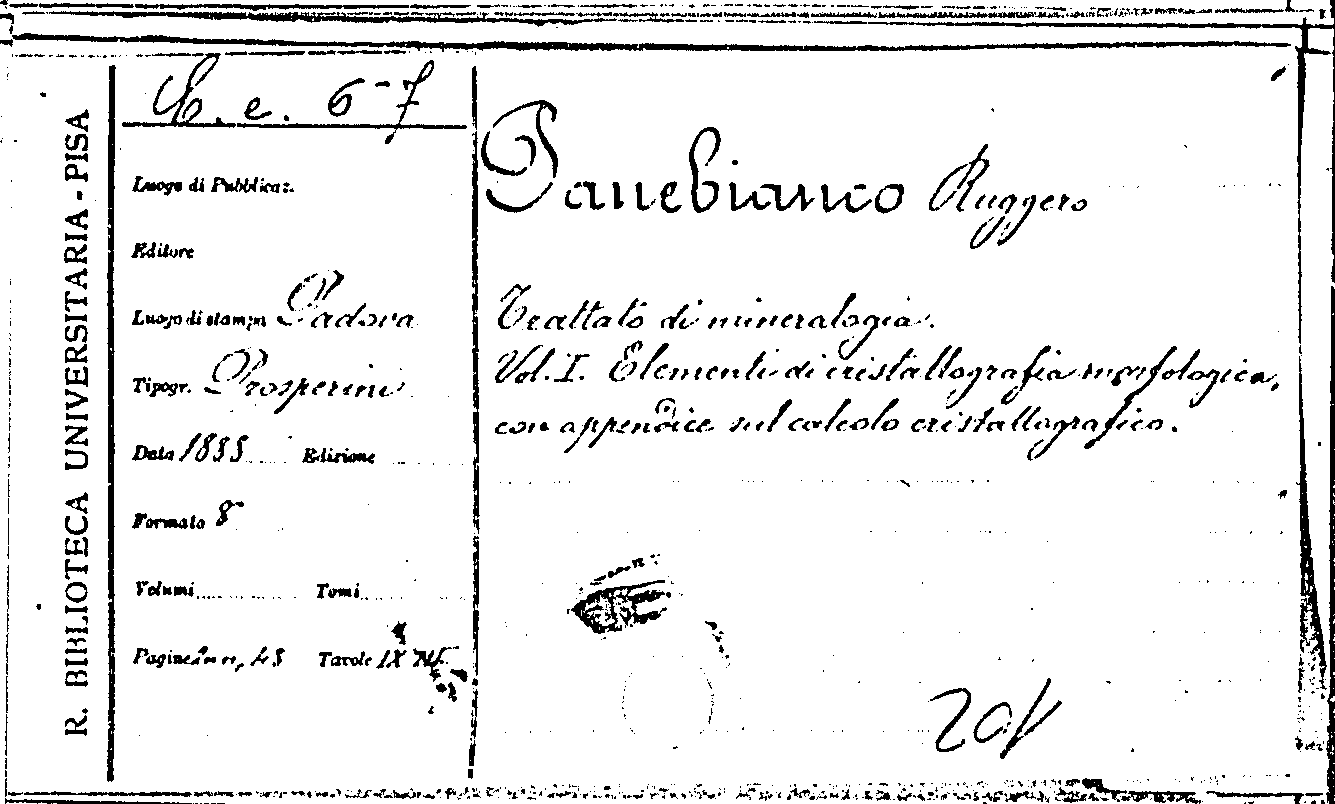 R. BIBLIOTECA UNIVERSITARIA - PISA
E. e. 6-7
Luogo di Pubblicaz.
Editore
Luogo di stampa Padova
Tipogr. Prosperini
Data Edizione
Formato 8º
Volumi Tomi
Pagine Tavole IX
Panebianco Ruggero
Trattato di mineralogia.
Vol. I. Elementi di cristallografia morfologica,
con appendice sul calcolo cristallografico.